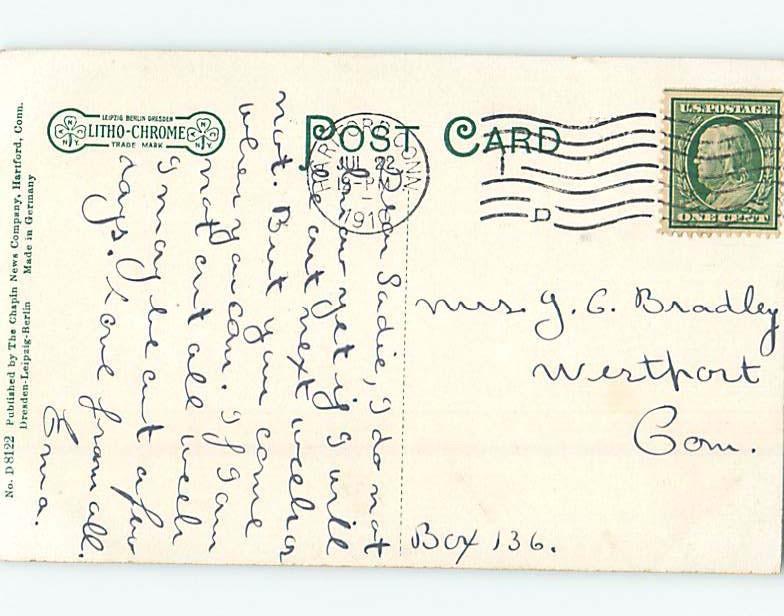 No. D 8122 Published by The Chapin News Company, Hartford, Conn.
Dresden-Leipzig-Berlin Made in Germany
LEIPZIG BERLIN DRESDEN
LITHO-CHROME
TRADE MARK
N.Y.
N.Y.
POST CARD
HARTFORD, CONN.
JUL 22
12-PM
1910
D
U.S. POSTAGE
ONE CENT
Dear Sadie, I do not
know yet if I will
be out next week or
not. But you come
when you can. If I am
not out all week
I may be out a few
days. Love from all.
Erma.
Mrs. J. C. Bradley
Westport
Conn.
Box 136.